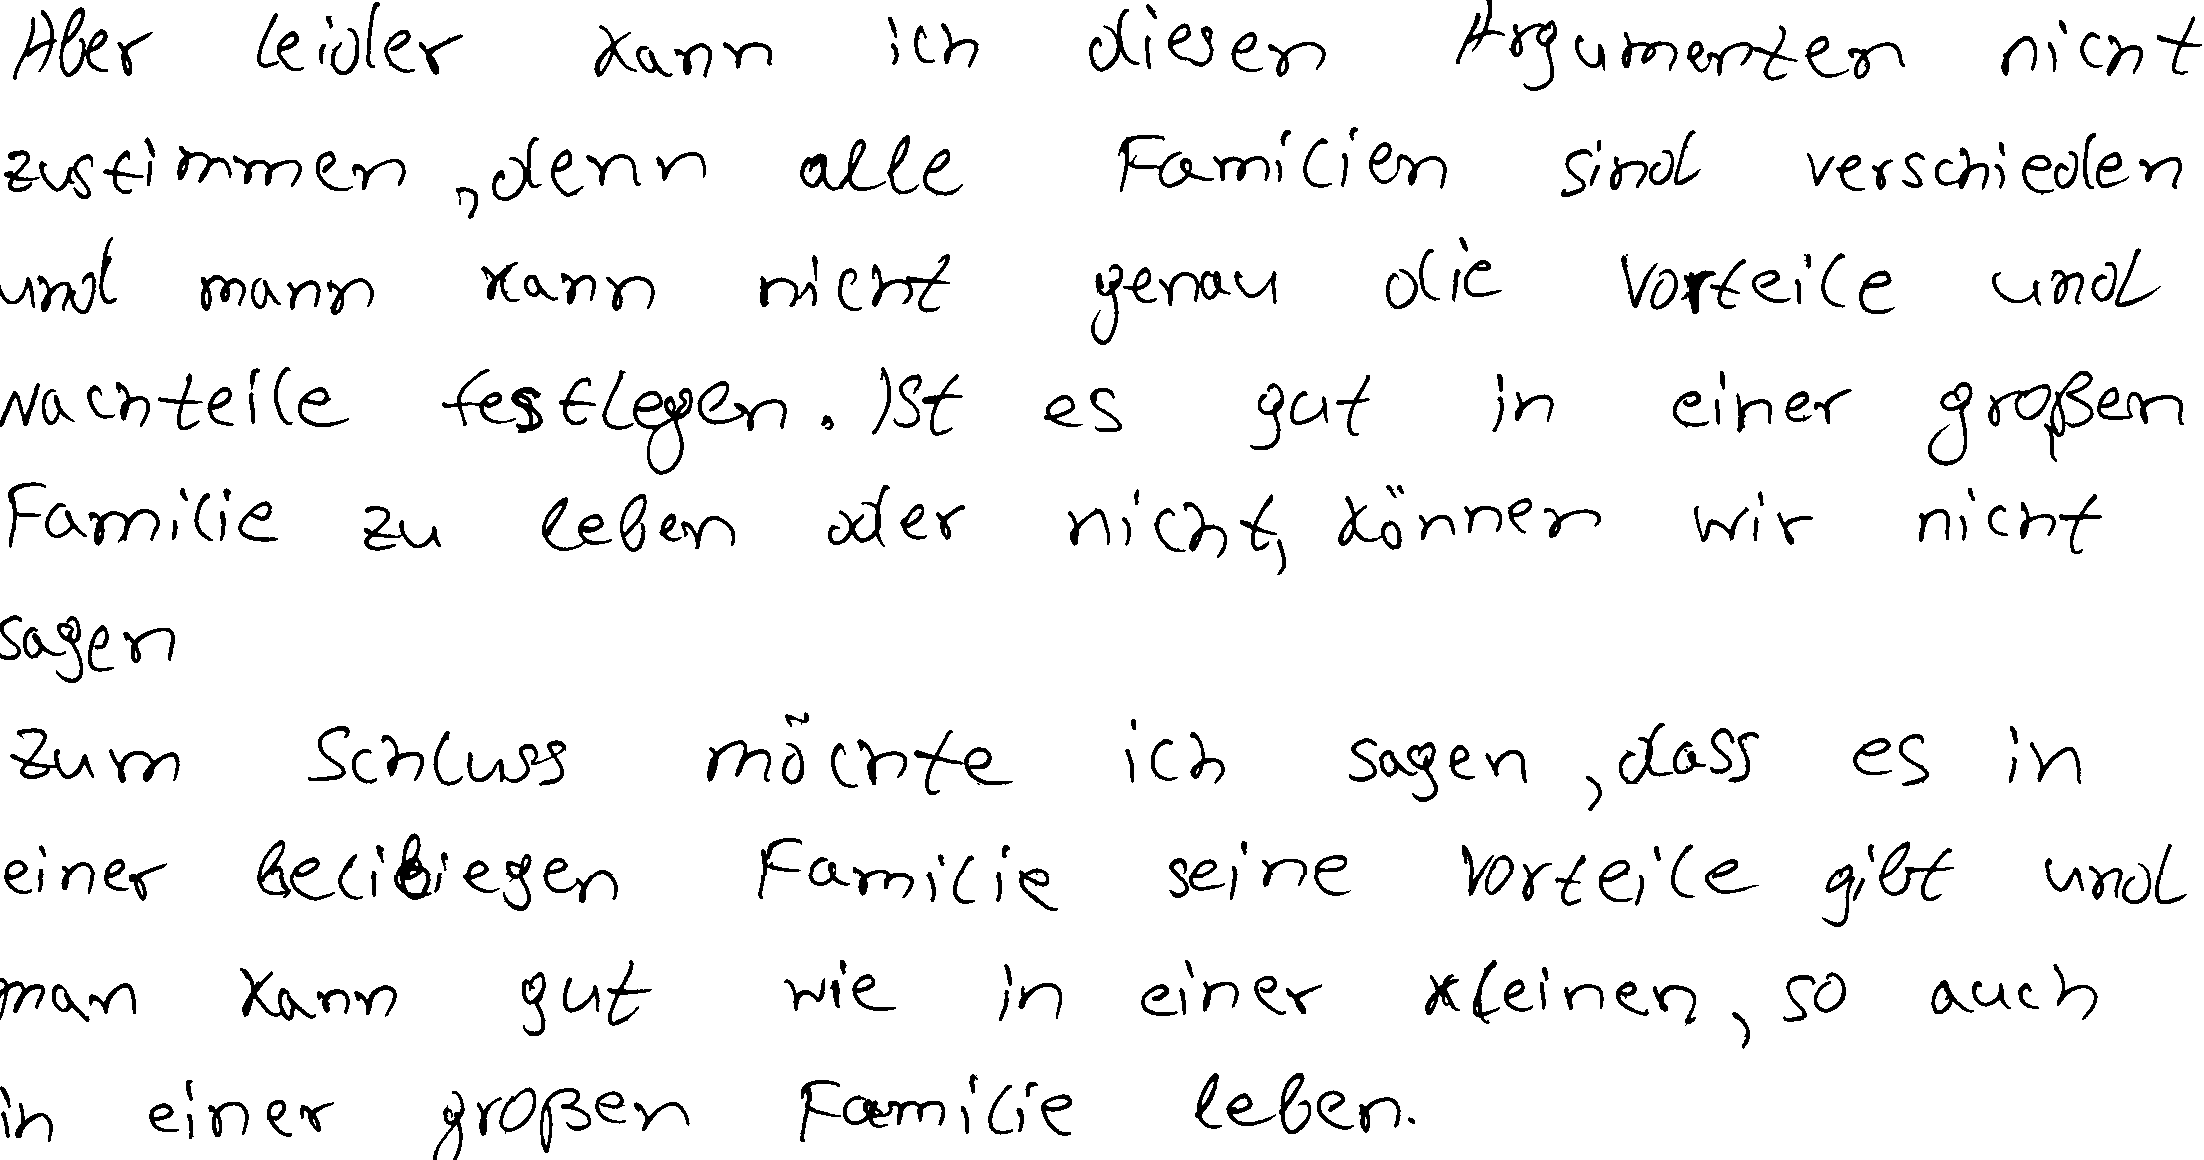 Aber leider kann ich diesen Argumenten nicht
zustimmen, denn alle Familien sind verschieden
und mann kann nicht genau die Vorteile und
Nachteile festlegen. Ist es gut in einer großen
Familie zu leben oder nicht, können wir nicht
sagen
Zum Schluss möchte ich sagen, dass es in
einer belibiegen Familie seine Vorteile gibt und
man kann gut wie in einer kleinen, so auch
in einer großen Familie leben.